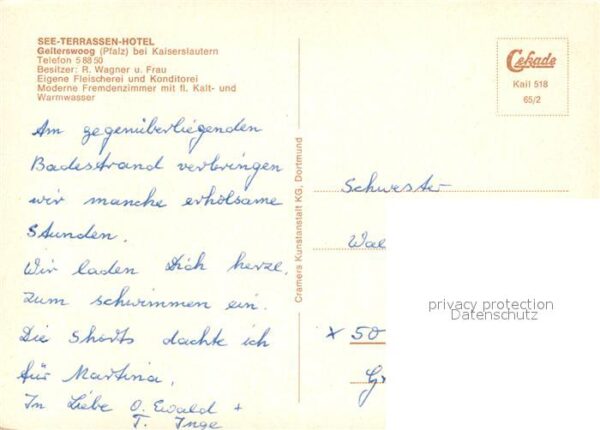 SEE-TERRASSEN-HOTEL
Gelterswoog (Pfalz) bei Kaiserslautern
Telefon 5 88 50
Besitzer: R. Wagner u. Frau
Eigene Fleischerei und Konditorei
Moderne Fremdenzimmer mit fl. Kalt- und
Warmwasser
Cekade
Kail 518
65/2
Am gegenüberliegenden
Badestrand verbringen
wir manche erholsame
Stunden.
Wir laden Dich herzl.
zum schwimmen ein.
Die Shorts dachte ich
für Martina.
In Liebe O. Ewald +
T. Inge
Cramers Kunstanstalt KG, Dortmund
Schwester
Wal
x 50
G
privacy protection
Datenschutz